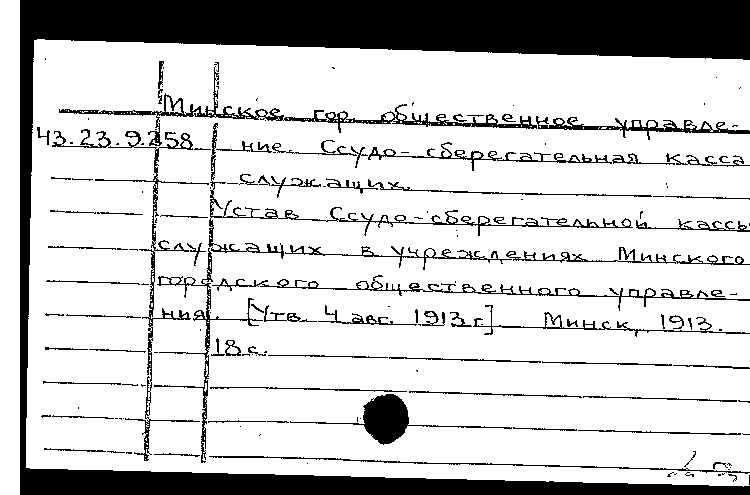 Минское гор. общественное управле-
43.23.9.258 ние. Ссудо-сберегательная касса
служащих.
Устав Ссудо-сберегательной кассы
служащих в учреждениях Минского
городского общественного управле-
ния. [Утв. 4 авг. 1913 г.] Минск, 1913.
18 с.